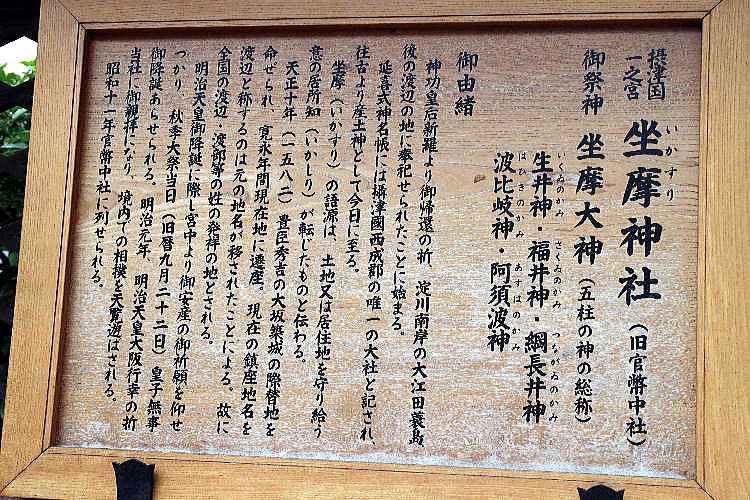 摂津国
一之宮
坐摩神社（旧官幣中社）
いかすり
御祭神 坐摩大神（五柱の神の総称）
生井神・福井神・綱長井神
いくゐのかみ さくゐのかみ つながゐのかみ
波比岐神・阿須波神
はひきのかみ あすはのかみ
御由緒
神功皇后新羅より御帰還の折、淀川南岸の大江田蓑島
後の渡辺の地に奉祀せられたことに始まる。
延喜式神名帳には摂津國西成郡の唯一の大社と記され
往古より産土神として今日に至る。
坐摩（いかすり）の語源は、土地又は居住地を守り給う
意の居所知（いかしり）が転じたものと伝わる。
天正十年（一五八二）豊臣秀吉の大坂築城の際替地を
命ぜられ、寛永年間現在地に遷座。現在の鎮座地名を
渡辺と称するのは元の地名が移されたことによる。故に
全国の渡辺 渡部等の姓の発祥の地とされる。
明治天皇御降誕に際し宮中より御安産の御祈願を仰せ
つかり、秋季大祭当日（旧暦九月二十二日）皇子無事
御降誕あらせられる。明治元年、明治天皇大阪行幸の折
当社に御親拝になり、境内での相撲を天覧遊ばされる。
昭和十一年官幣中社に列せられる。